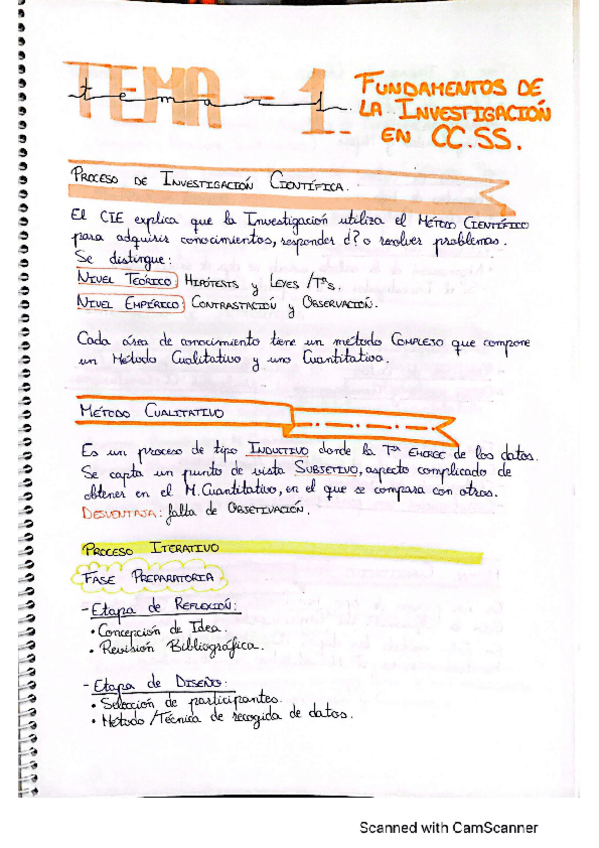 TEMA - 1.
tema - 1.
FUNDAMENTOS DE
LA INVESTIGACIÓN
EN CC.SS.
PROCESO DE INVESTIGACIÓN CIENTÍFICA.
El CIE explica que la Investigación utiliza el MÉTODO CIENTÍFICO
para adquirir conocimientos, responder d? o resolver problemas.
Se distingue:
NIVEL TEÓRICO HIPÓTESIS y LEYES /Tªs.
NIVEL EMPÍRICO CONTRASTACIÓN y OBSERVACIÓN.
Cada área de conocimiento tiene un método COMPLEJO que compone
un Método Cualitativo y uno Cuantitativo.
MÉTODO CUALITATIVO
Es un proceso de tipo INDUCTIVO donde la Tª EMERGE de los datos.
Se capta un punto de vista SUBJETIVO, aspecto complicado de
obtener en el M. Cuantitativo, en el que se compara con otros.
DESVENTAJA: falta de OBJETIVACIÓN.
PROCESO ITERATIVO
FASE PREPARATORIA
- Etapa de REFLEXIÓN:
• Concepción de Idea.
• Revisión Bibliográfica.
- Etapa de DISEÑO:
• Selección de participantes.
• Método / Técnica de recogida de datos.
Scanned with CamScanner